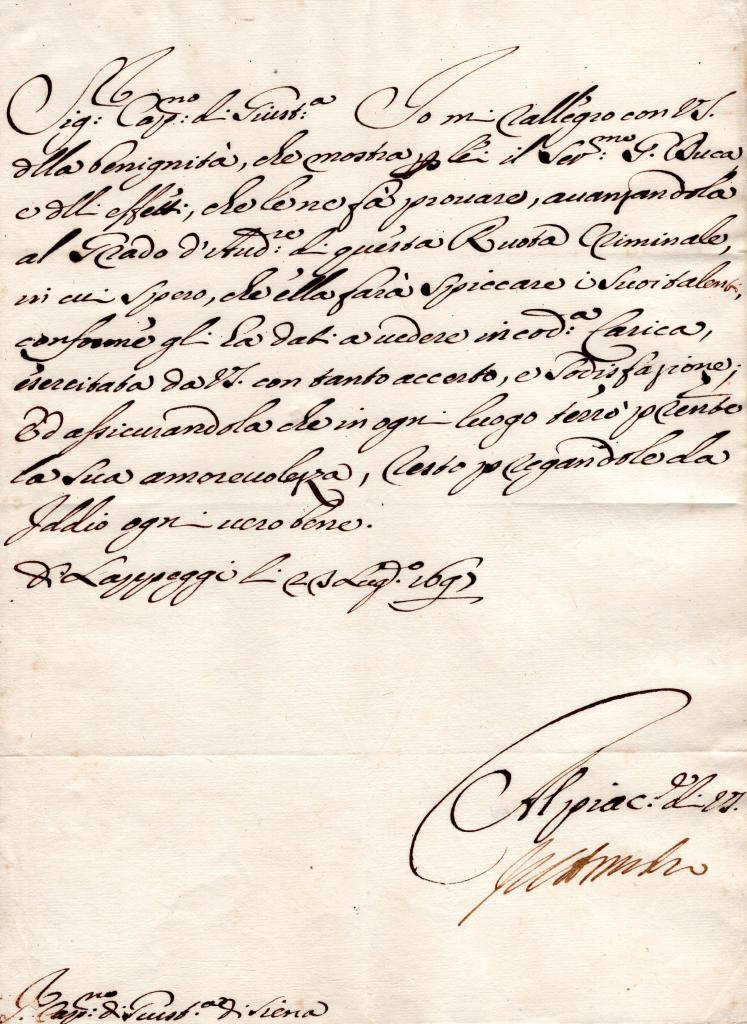 Sig: Cap:no di Giust:a Io mi rallegro con VS.
dlla benignità, che mostra p lei il Ser:mo G. Duca
e dlli effetti, che le ne fà prouare, auanzandola
al Grado d'Aud:re di questa Ruota Criminale,
in cui spero, che ella farà spiccare i suoi talenti,
conforme gli ha dati a uedere in cod:a Carica,
esercitata da VS. con tanto accerto, e sodisfazione;
Ed assicurandola che in ogni luogo terrò pnte
la sua amoreuolezza, resto pregandole da
Iddio ogni uero bene.
Di Lappeggi li 23 Lug:o 1697
Al piac:e di VS.
S. Cap:no di Giust:a di Siena